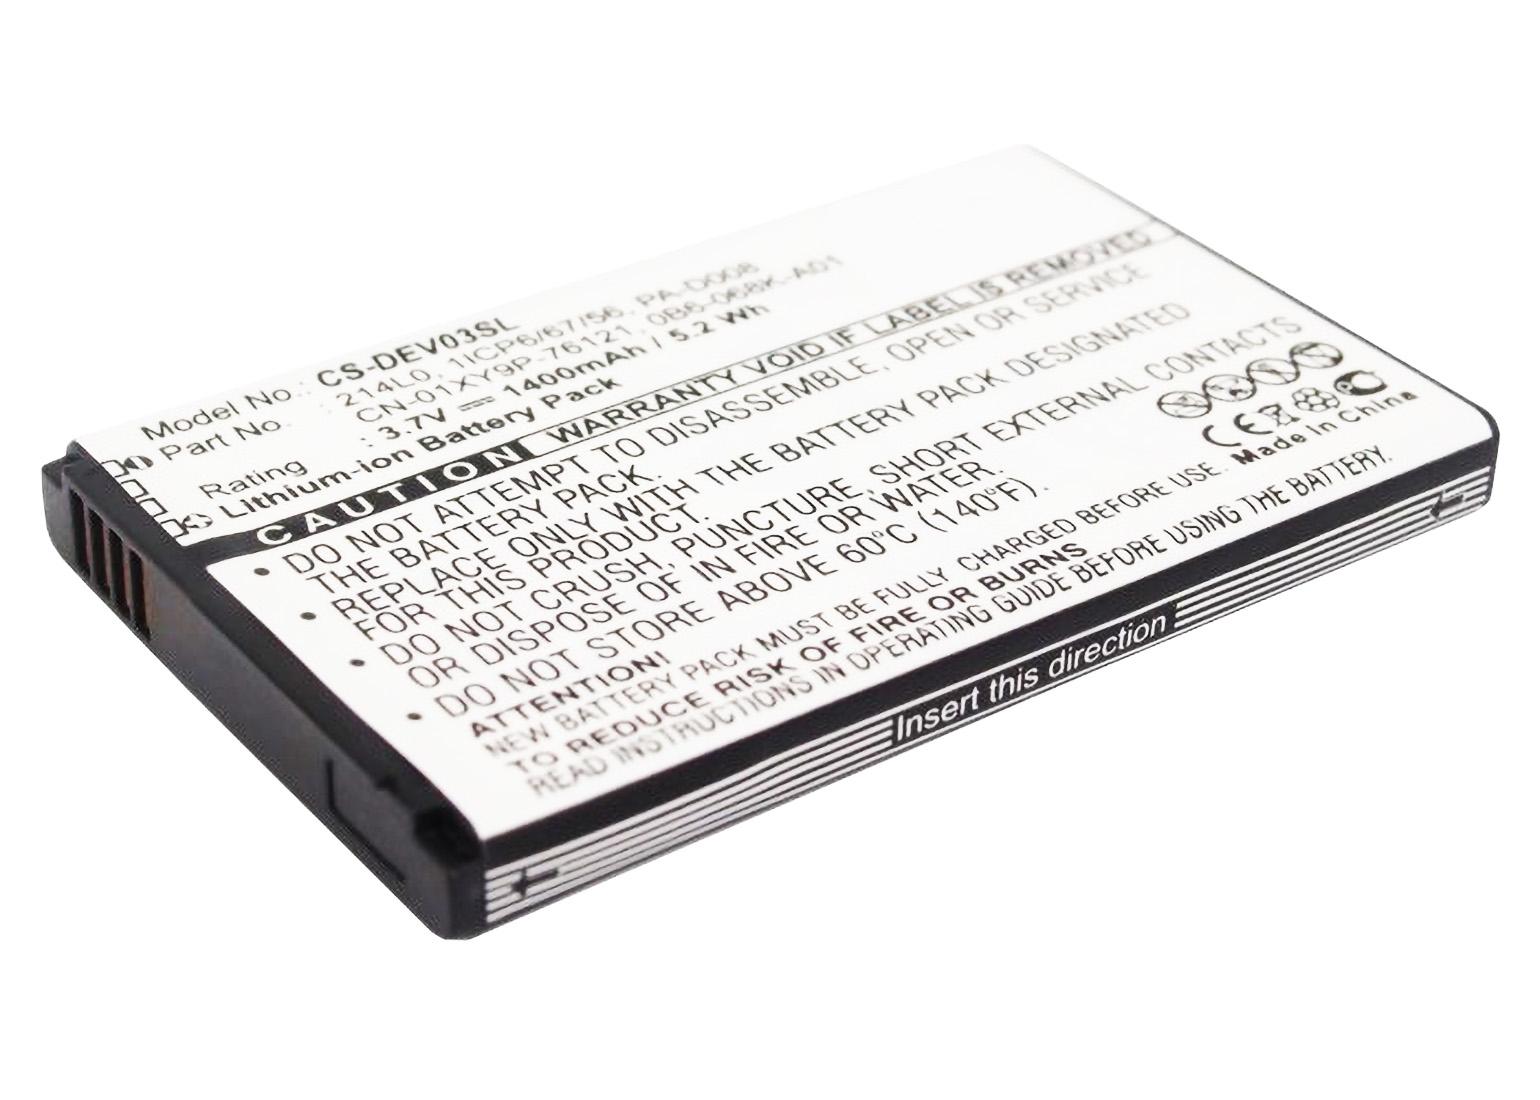 Model No.: CS-DEV03SL
Part No. : 214L0, 1ICP6/67/56, PA-D008
CN-01XY9P-76121, 0B6-068K-A01
Rating : 3.7V 1400mAh / 5.2 Wh
Lithium-ion Battery Pack
CAUTION WARRANTY VOID IF LABEL IS REMOVED
• DO NOT ATTEMPT TO DISASSEMBLE, OPEN OR SERVICE
THE BATTERY PACK.
• REPLACE ONLY WITH THE BATTERY PACK DESIGNATED
FOR THIS PRODUCT.
• DO NOT CRUSH, PUNCTURE, SHORT EXTERNAL CONTACTS
OR DISPOSE OF IN FIRE OR WATER.
• DO NOT STORE ABOVE 60°C (140°F).
ATTENTION!
NEW BATTERY PACK MUST BE FULLY CHARGED BEFORE USE.
TO REDUCE RISK OF FIRE OR BURNS
READ INSTRUCTIONS IN OPERATING GUIDE BEFORE USING THE BATTERY.
CE
Made In China
Insert this direction